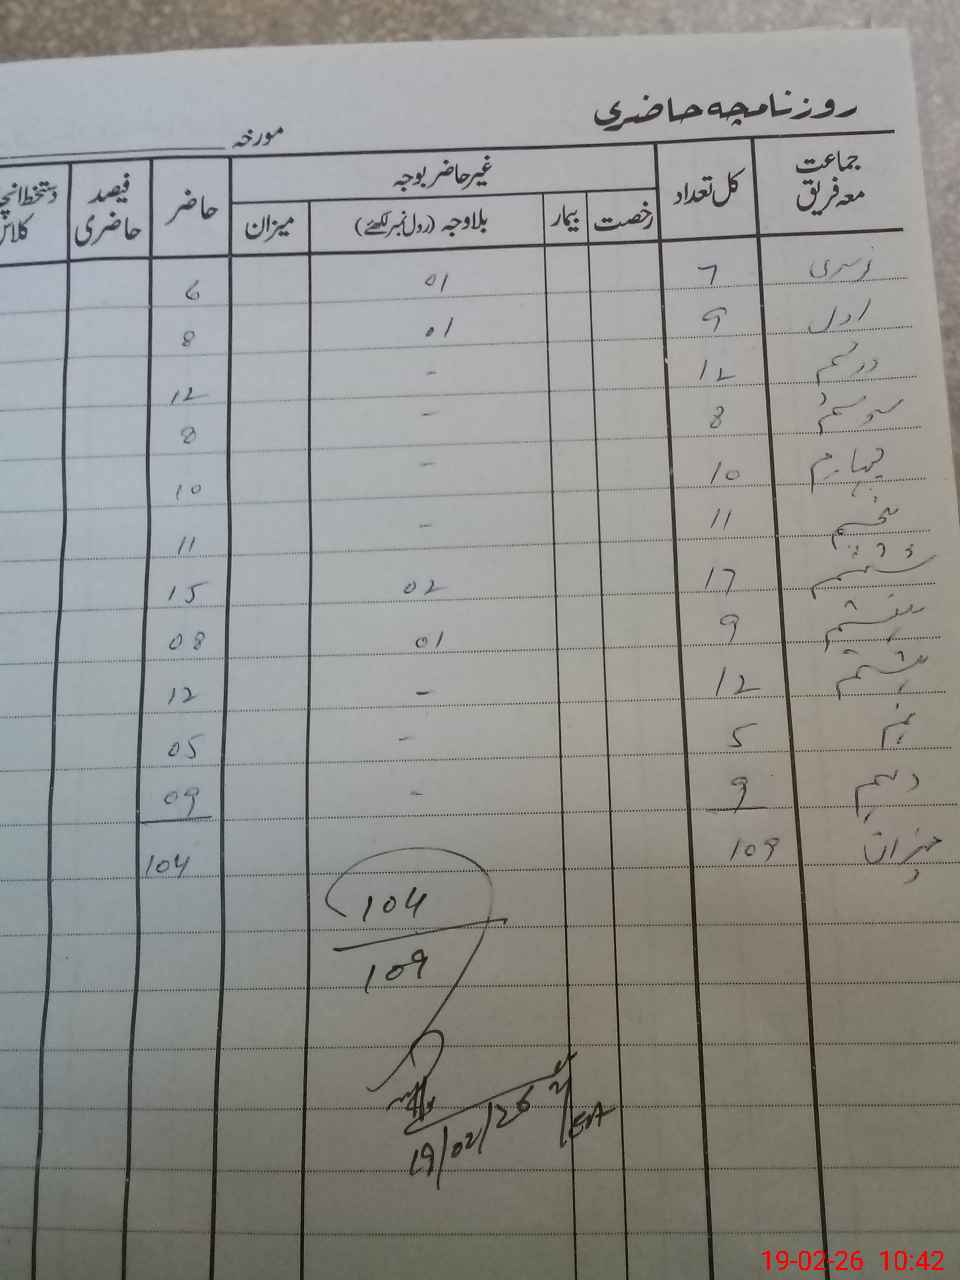 روزنامچہ حاضری
مورخہ
جماعت معہ فریق کل تعداد غیر حاضر بوجہ حاضر فیصد حاضری دستخط انچ کلاس
رخصت بیمار بلاوجہ (رول نمبر لکھئے) میزان
نرسری 7 01 6
اول 9 01 8
دوئم 12 - 12
سوئم 8 - 8
چہارم 10 - 10
پنجم 11 - 11
ششم 17 02 15
ہفتم 9 01 08
ہشتم 12 - 12
نہم 5 - 05
دہم 9 - 09
میزان 109 104
104
109
19/02/26
19-02-26 10:42